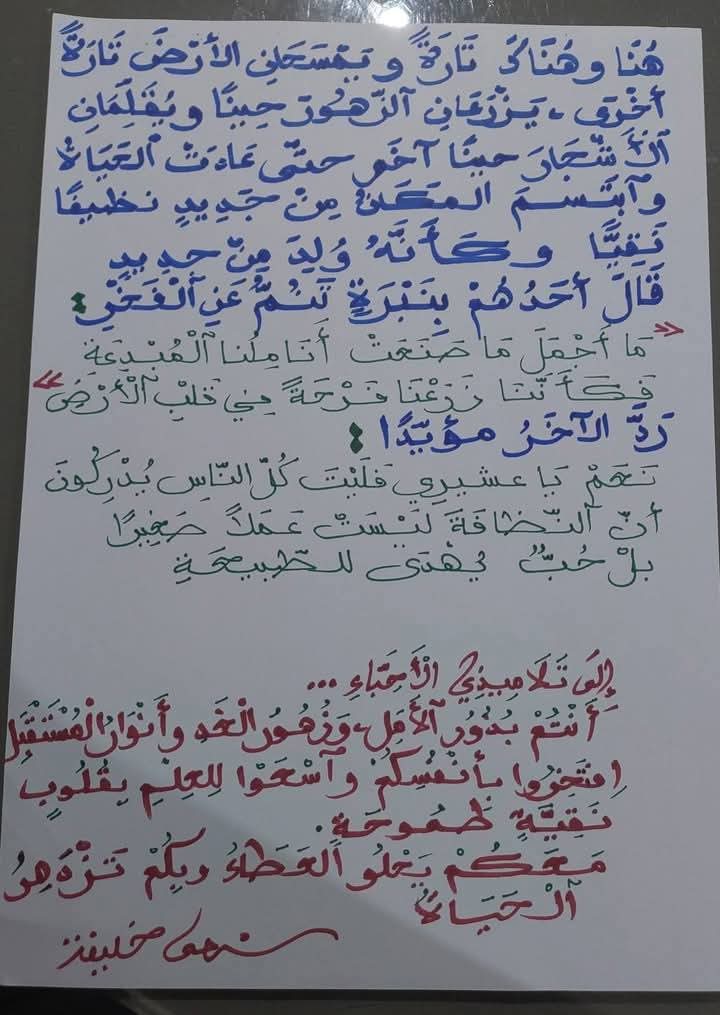 هُنَا وهُنَاكَ تَارَةً و يَمْسَحَانِ الأَرْضَ تَارَةً
أخْرَى ، يَزْرَعَانِ ٱلزّهُورَ حِينًا ويُقَلِّمَانِ
ٱلأَشْجَارَ حينًا آخَر حتّى عَادَتْ ٱلحَيَاةُ
وٱبْتَسمَ المَكَانُ مِنْ جَدِيدٍ نظيفًا
نَقِيًّا وكَأَنَّهُ وُلِدَ مِنْ جدِيدٍ
قَالَ أحَدُهُمْ بِنَبْرَةٍ تَنُمُّ عَنِ ٱلْفَخْرِ :
« مَا أَجْمَلَ مَا صَنَعَتْ أَنَامِلُنَا ٱلْمُبْدِعَة
فَكَأَنَّنَا زَرَعْنَا فَرْحَةً فِي قلبِ ٱلْأَرْضِ »
رَدَّ الآخَرُ مؤيّدًا :
نَعَمْ يَا عشيرِي فَلَيْتَ كُلّ النّاسِ يُدْرِكُونَ
أنّ ٱلنّظَافَةَ لَيْسَتْ عَمَلاً صَغِيرًا
بلْ حُبٌّ يُهْدَى للطّبِيعَةِ
إِلَى تَلَامِيذِي ٱلْأَحِبّاءِ ...
أَنْتُمْ بُذُورُ ٱلأَمَلِ، وَزُهُورُ الْغَدِ وأَنْوَارُ الْمُسْتَقْبَلِ
اِفتَخِرُوا بِأنْفُسِكُمْ وٱسْعَوْا لِلعِلْمِ بِقُلُوبٍ
نَقِيَّةٍ طَمُوحَةٍ .
مَعَكُمْ يَحْلُو ٱلعَطَاءُ وبِكُمْ تَزْهَرُ
ٱلْحَيَاةُ